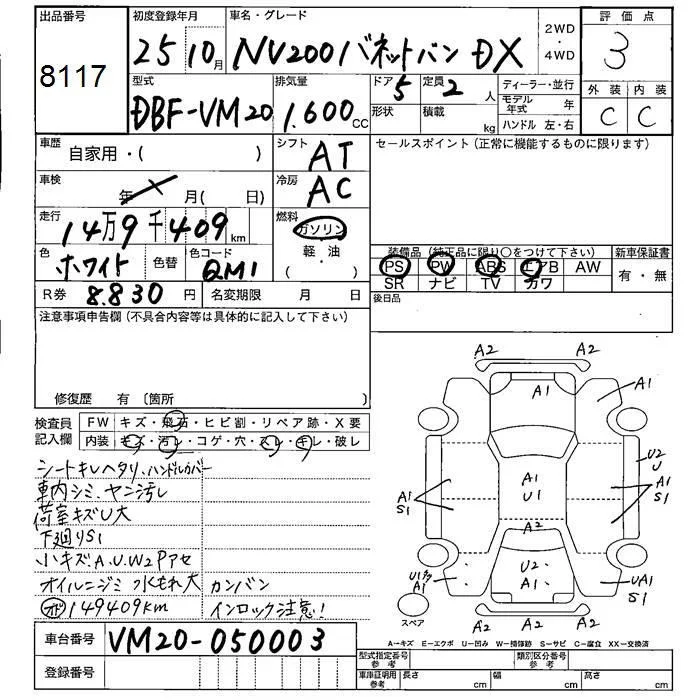 出品番号 初度登録年月 車名・グレード 2WD ・ 4WD 評価点
8117 25 10月 NV200バネットバン DX 3
型式 排気量 ドア 5 定員 2 人 ディーラー・並行 外装 内装
DBF-VM20 1.600 CC 形状 積載 kg モデル年式 年 C C
ハンドル 左・右
車歴 自家用・( ) シフト AT セールスポイント (正常に機能するものに限ります)
車検 年 月( 日) 冷房 AC
走行 14万9千409 km 燃料 ガソリン
軽・油
( ・ )
色 ホワイト 色替 色コード QM1
装備品 (純正品に限り○をつけて下さい) 新車保証書
PS PW ABS エアB AW 有・無
SR ナビ TV カワ
R券 8.830 円 名変期限 月 日 後日品
注意事項申告欄 (不具合内容等は具体的に記入して下さい)
修復歴 有 〔箇所 〕
検査員記入欄 FW キズ・飛石・ヒビ割・リペア跡・X要
内装 キズ・汚レ・コゲ・穴・スレ・キレ・破レ
シートキレヘタリ、ハンドルカバー
車内シミ、ヤニ汚レ
荷室キズU大
下廻りS1
小キズA.U.W2Pアセ
オイルニジミ 水もれ大 カンバン
149409km インロック注意!
A2 A2
A1 A1
U2
U
A1
S1
A1
U1
A1
S1
A2
U2
A1
U1
A1
UA1
S1
スペア A2 A2 A2
A-キズ E-エクボ U-凹み W-補修跡 S-サビ C-腐食 XX-交換済
車台番号 VM20-050003
型式指定番号 参考 類別区分番号 参考
登録番号 車庫証明用 参考 長さ cm 幅 cm 高さ cm